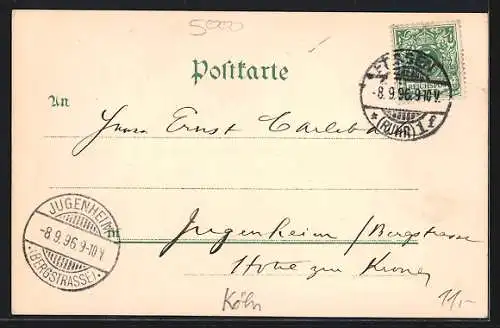 5000
Postkarte
ESSEN
-8.9.96.9-10V.
* (RUHR) 1 f
An
Herrn Ernst
JUGENHEIM
-8.9.96 9-10 V.
(BERGSTRASSE)
in Jugenheim / Bergstrasse
Hotel zur Krone
Köln
11,-